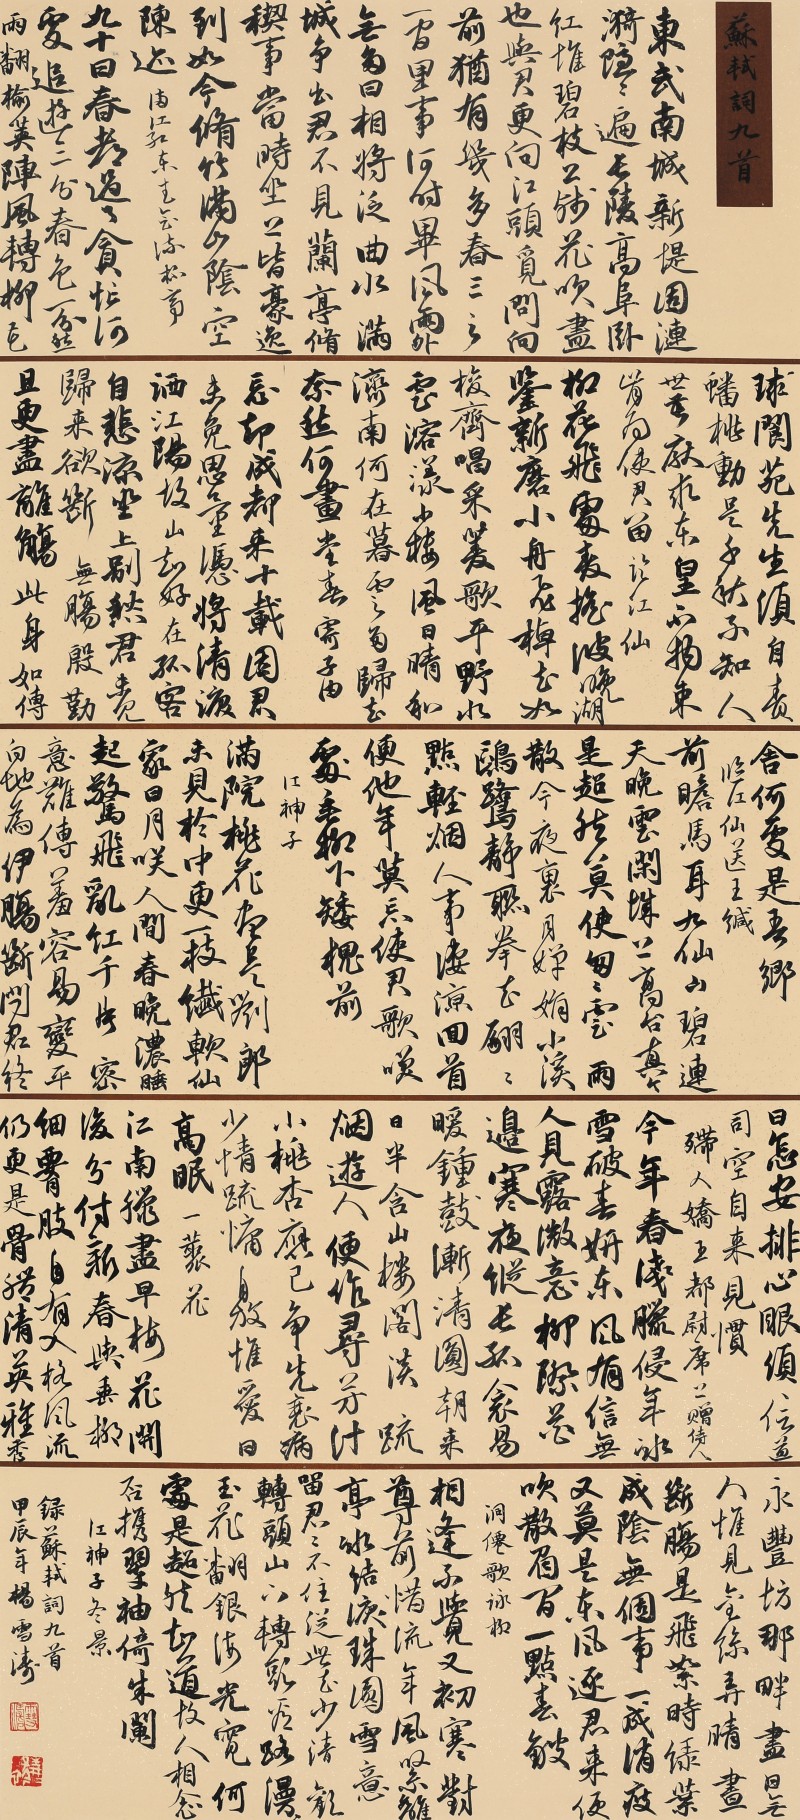 蘇軾詞九首
東武南城新堤固漣
漪隱隱遍長陵高阜臥
紅堆碧枝上殘花吹盡
也與君更向江頭覓問向
前猶有幾多春三之
一官里事何時畢風雨外
無多日相將泛曲水滿
城爭出君不見蘭亭脩
禊事當時坐上皆豪逸
到如今脩竹滿山陰空
陳迹 滿江紅東武會流杯亭
九十日春都過了貪忙何
處追遊三分春色一分愁
雨翻榆莢陣風轉柳花
球閬苑先生須自責
蟠桃動是千秋不知人
世苦厭求東皇不拘束
肯為使君留 臨江仙
柳花飛處麥搖波晚湖
鑒新磨小舟飛棹去如
梭齊唱采菱歌平野水
雲溶漾小樓風日晴和
濟南何在暮雲多歸去
奈愁何 畫堂春寄子由
忘卻成都來十載因君
未免思量憑將清淚
洒江陽故山知好在孤客
自悲涼坐上別愁君未見
歸來欲斷無腸殷勤
且更盡離觴此身如傳
舍何處是吾鄉
臨江仙送王緘
前瞻馬耳九仙山碧連
天晚雲閒城上高台真个
是超然莫使匆匆雲雨
散今夜裏月嬋娟小溪
鷗鷺靜聯拳去翩翩
點輕烟人事淒涼回首
便他年莫忘使君歌笑
處垂柳下矮槐前
江神子
滿院桃花盡是劉郎
未見於中更一枝纖軟仙
家日月笑人間春晚濃睡
起驚飛亂紅千片密
意難傳羞容易變平
白地為伊腸斷問君終
日怎安排心眼須信道
司空自來見慣
殢人嬌王都尉席上贈侍人
今年春淺臘侵年冰
雪破春妍東風有信無
人見露微意柳際花
邊寒夜縱長孤衾易
暖鐘鼓漸清圓朝來
日半含山樓閣淡疏
烟遊人便作尋芳計
小桃杏應已爭先衰病
少情疏慵自放惟愛日
高眠 一叢花
江南臘盡早梅花開
後分付新春與垂柳
細腰肢自有入格風流
仍更是骨體清英雅秀
永豐坊那畔盡日無
人惟見金絲弄晴晝
斷腸是飛絮時綠葉
成陰無個事一成消瘦
又莫是東風逐君來便
吹散眉間一點春皺
洞僊歌詠柳
相逢不覺又初寒對
尊前惜流年風緊離
亭冰結淚珠圓雪意
留君君不住從此去少清歡
轉頭山下轉頭看路漫漫
玉花翻銀海光寬何
處是超然知道故人相念
否攜翠袖倚朱闌
江神子冬景
錄蘇軾詞九首
甲辰年楊雪濤